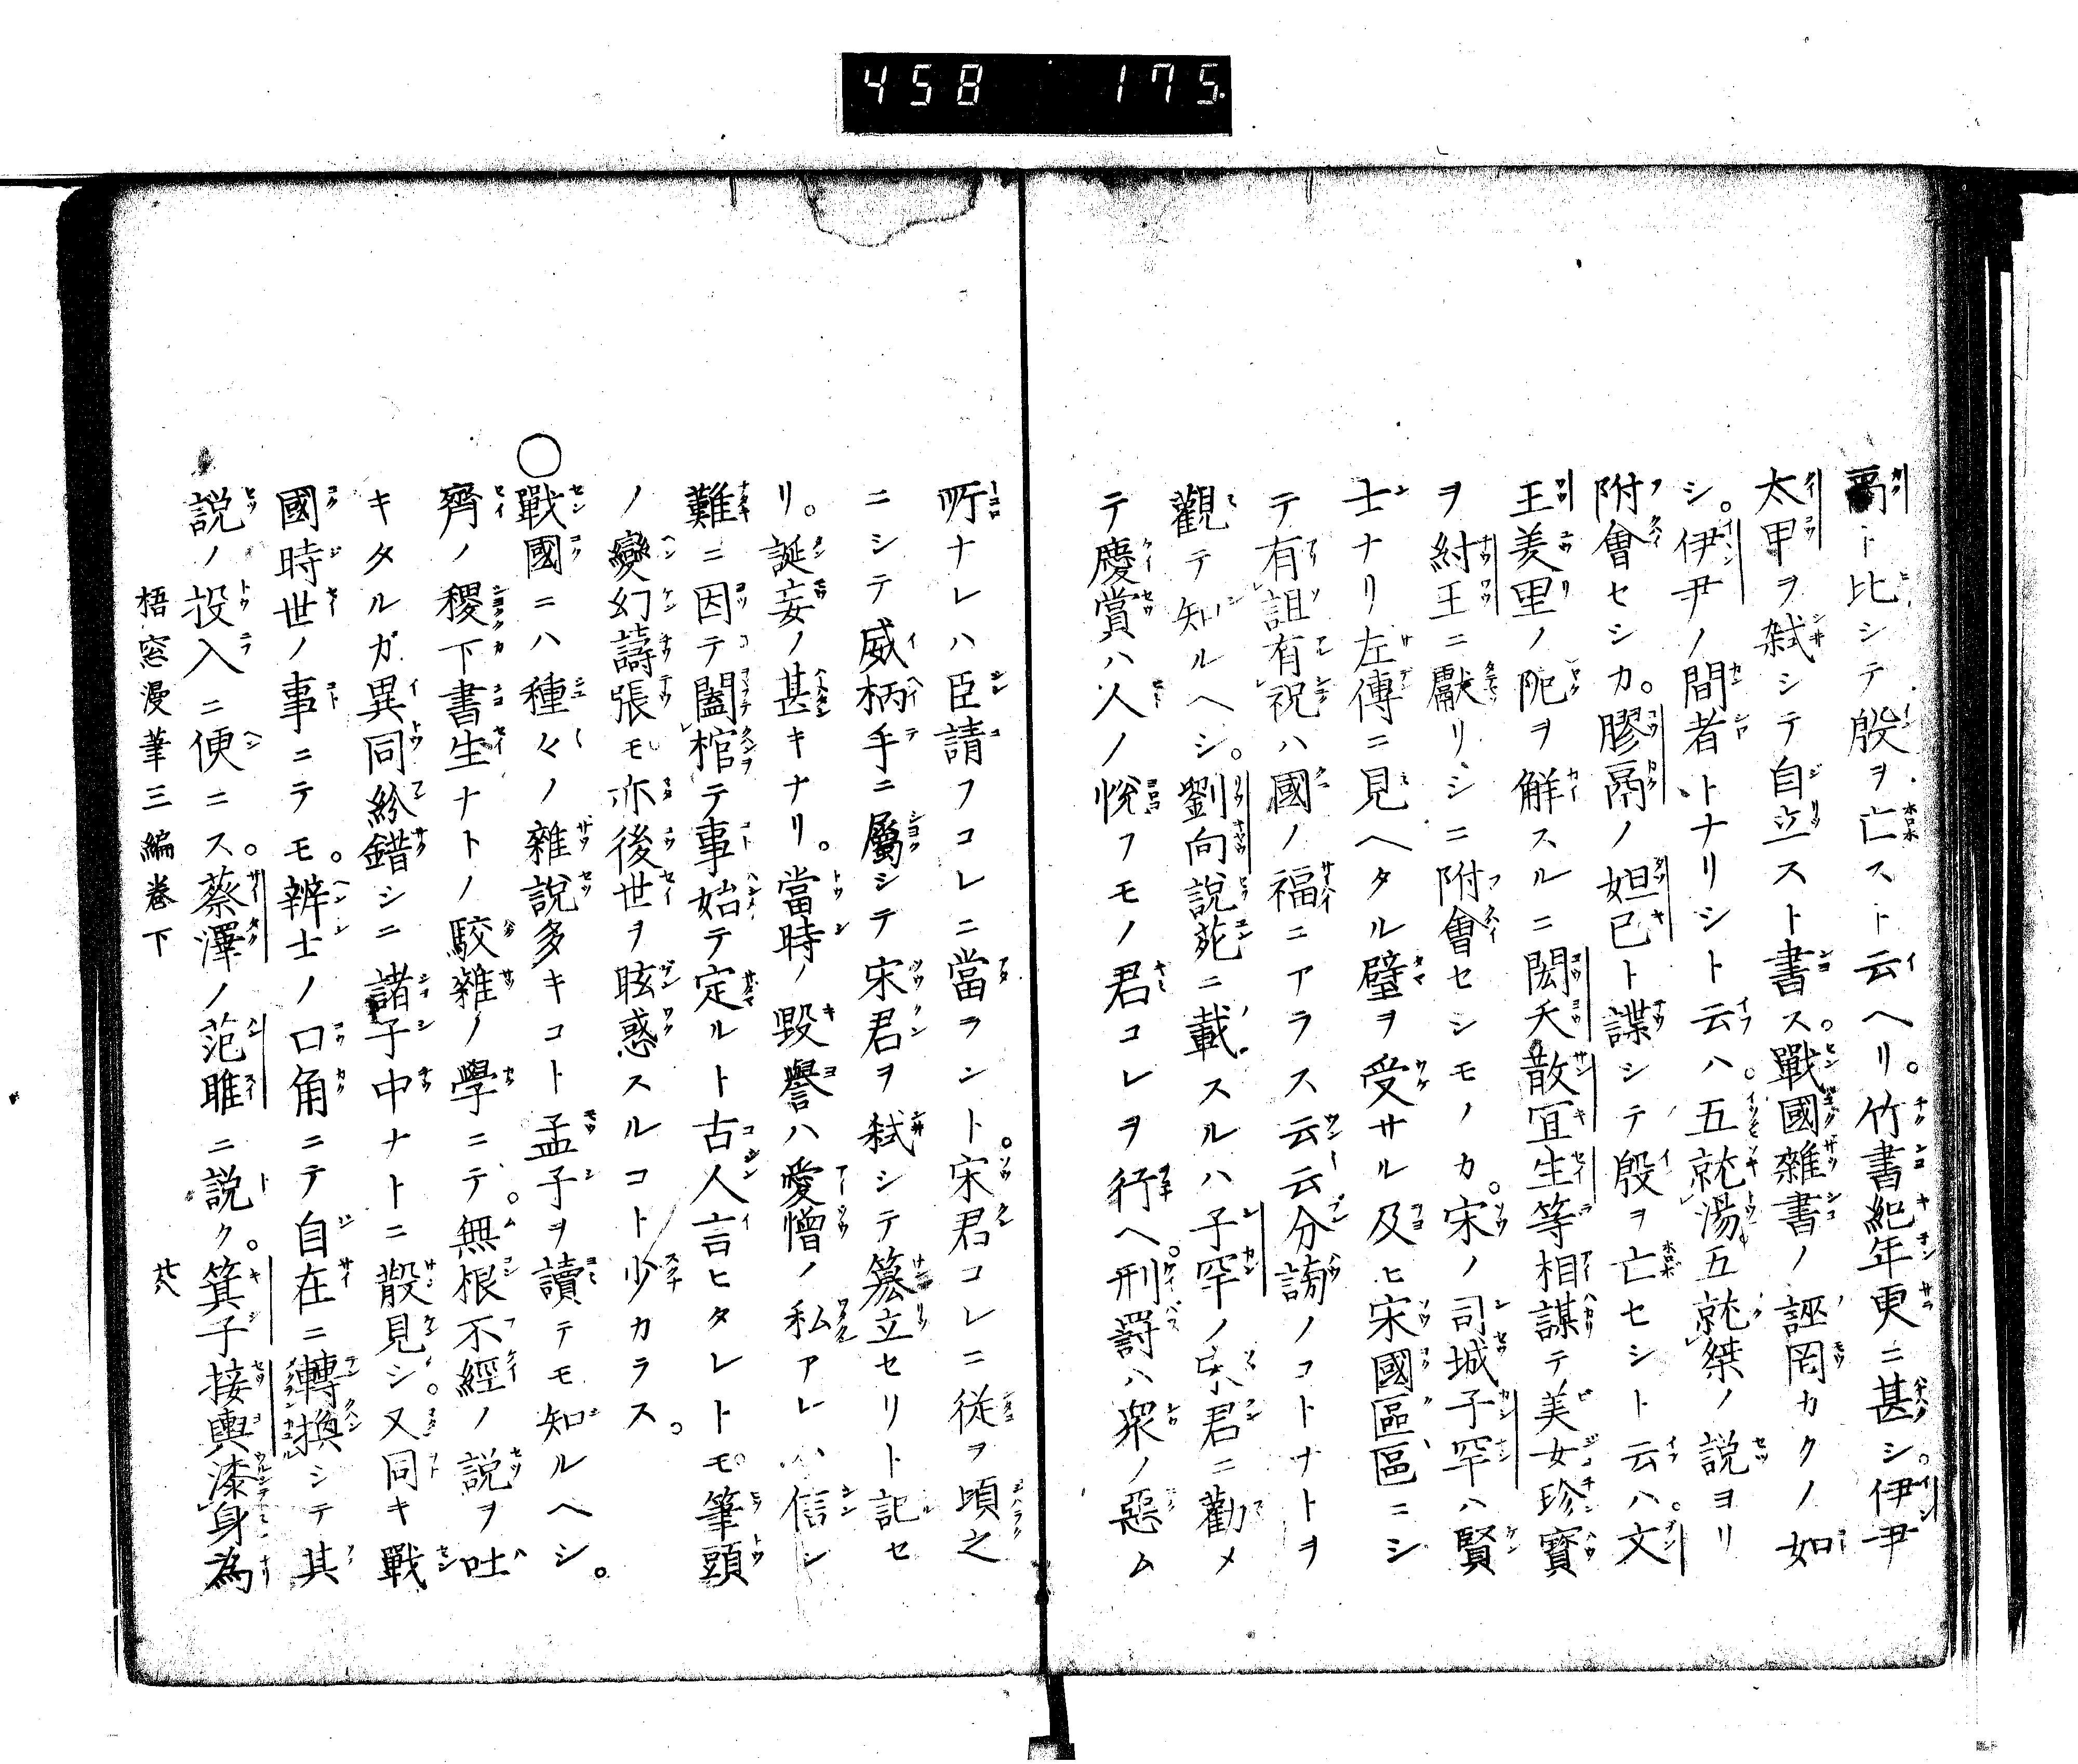 458 175
鬲ト比シテ殷ヲ亡スト云ヘリ。竹書紀年更ニ甚シ。伊尹
太甲ヲ弑シテ自立スト書ス。戰國雜書ノ誣罔カクノ如
シ。伊尹ノ間者トナリシト云ハ。五就湯五就桀ノ説ヨリ
附會セシカ。膠鬲ノ妲已ト諜シテ殷ヲ亡セシト云ハ。文
王羑里ノ阨ヲ解スルニ閎夭散宜生等相謀テ美女珍寳
ヲ紂王ニ獻リシニ附會セシモノカ。宋ノ司城子罕ハ賢
士ナリ左傳ニ見ヘタル璧ヲ受サル及ヒ宋國區區ニシ
テ有詛有祝ハ國ノ福ニアラス云云分謗ノコトナトヲ
觀テ知ルヘシ。劉向説苑ニ載スルハ子罕ノ宋君ニ勸メ
テ慶賞ハ人ノ悦フモノ君コレヲ行ヘ。刑罸ハ衆ノ惡ム
所ナレハ臣請フコレニ當ラント。宋君コレニ従ヲ頃之
ニシテ威柄手ニ屬シテ宋君ヲ弑シテ簒立セリト記セ
リ。誕妄ノ甚キナリ。當時ノ毀譽ハ愛憎ノ私アレハ信シ
難ニ因テ闔棺テ事始テ定ルト古人言ヒタレトモ。筆頭
ノ變幻譸張モ亦後世ヲ眩惑スルコト少カラス。
○戰國ニハ種々ノ雜説多キコト孟子ヲ讀テモ知ルヘシ。
齊ノ稷下書生ナトノ駁雜ノ學ニテ。無根不經ノ説ヲ吐
キタルガ異同紛錯シニ諸子中ナトニ散見シ。又同キ戰
國時世ノ事ニテモ。辨士ノ口角ニテ自在ニ轉換シテ其
説ノ投入ニ便ニス。蔡澤ノ范雎ニ説ク。箕子接輿漆身為
梧窓漫筆三編巻下 廿八